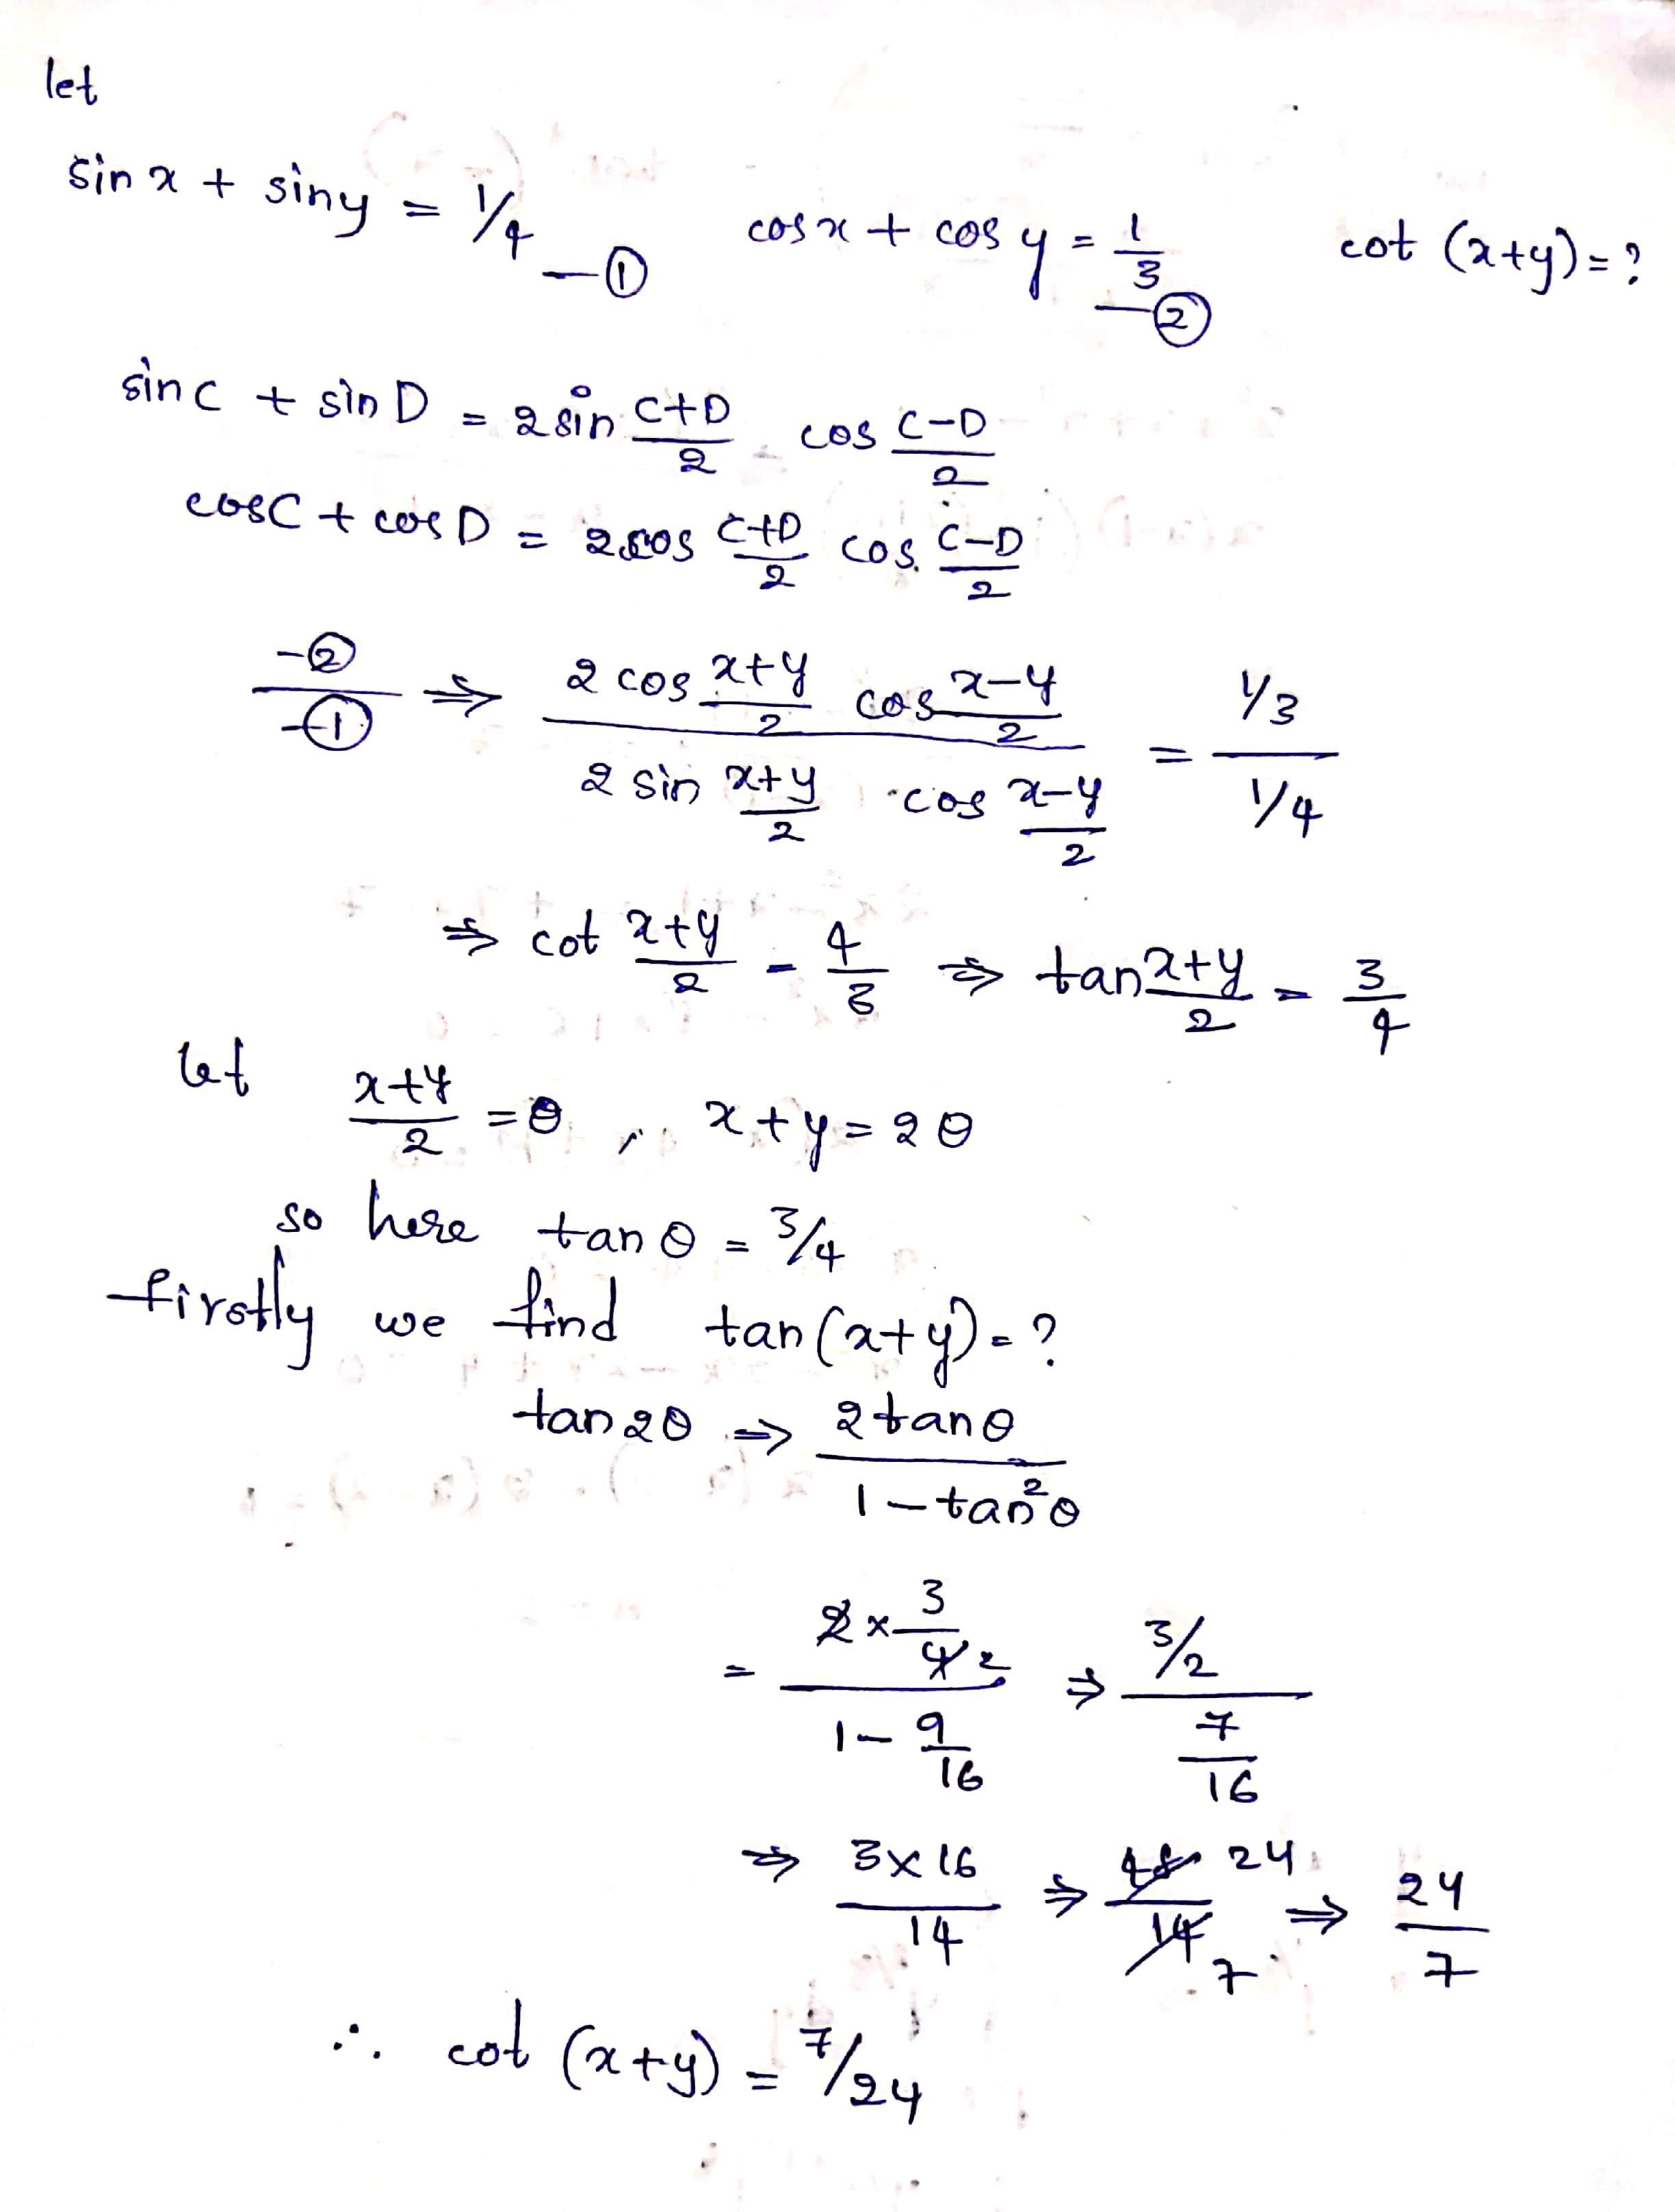 let
sin x + sin y = 1/4 —① cos x + cos y = 1/3 —② cot (x+y) = ?
sin C + sin D = 2 sin (C+D)/2 . cos (C-D)/2
cos C + cos D = 2 cos (C+D)/2 cos (C-D)/2
-②/-① ⇒ (2 cos (x+y)/2 cos (x-y)/2)/(2 sin (x+y)/2 cos (x-y)/2) = (1/3)/(1/4)
⇒ cot (x+y)/2 = 4/3 ⇒ tan (x+y)/2 = 3/4
let (x+y)/2 = θ , x+y = 2θ
so here tan θ = 3/4
firstly we find tan (x+y) = ?
tan 2θ ⇒ (2 tan θ)/(1 - tan²θ)
= (2 × 3/4 2)/(1 - 9/16) ⇒ (3/2)/(7/16)
⇒ (3×16)/14 ⇒ 48/14 24/7 ⇒ 24/7
∴ cot (x+y) = 7/24